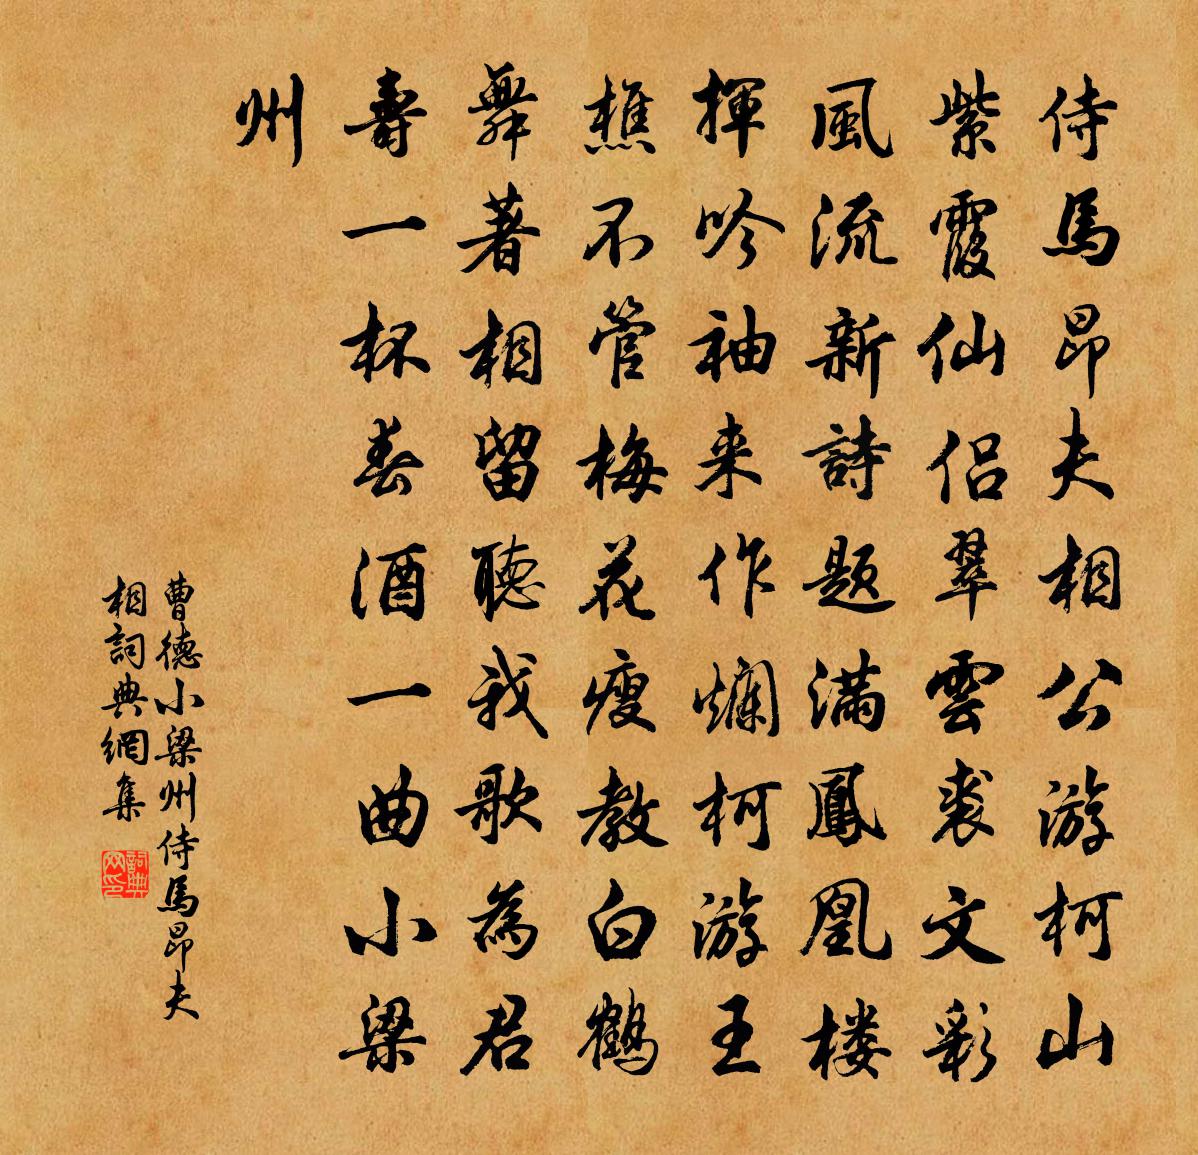 侍馬昂夫相公游柯山
紫霞仙侶翠雲裘文彩
風流新詩題滿鳳凰楼
揮吟袖来作爛柯游王
樵不管梅花瘦教白鶴
舞著相留聽我歌為君
壽一杯春酒一曲小梁
州
曹德小梁州侍馬昂夫
相詞典網集
詞典
网印